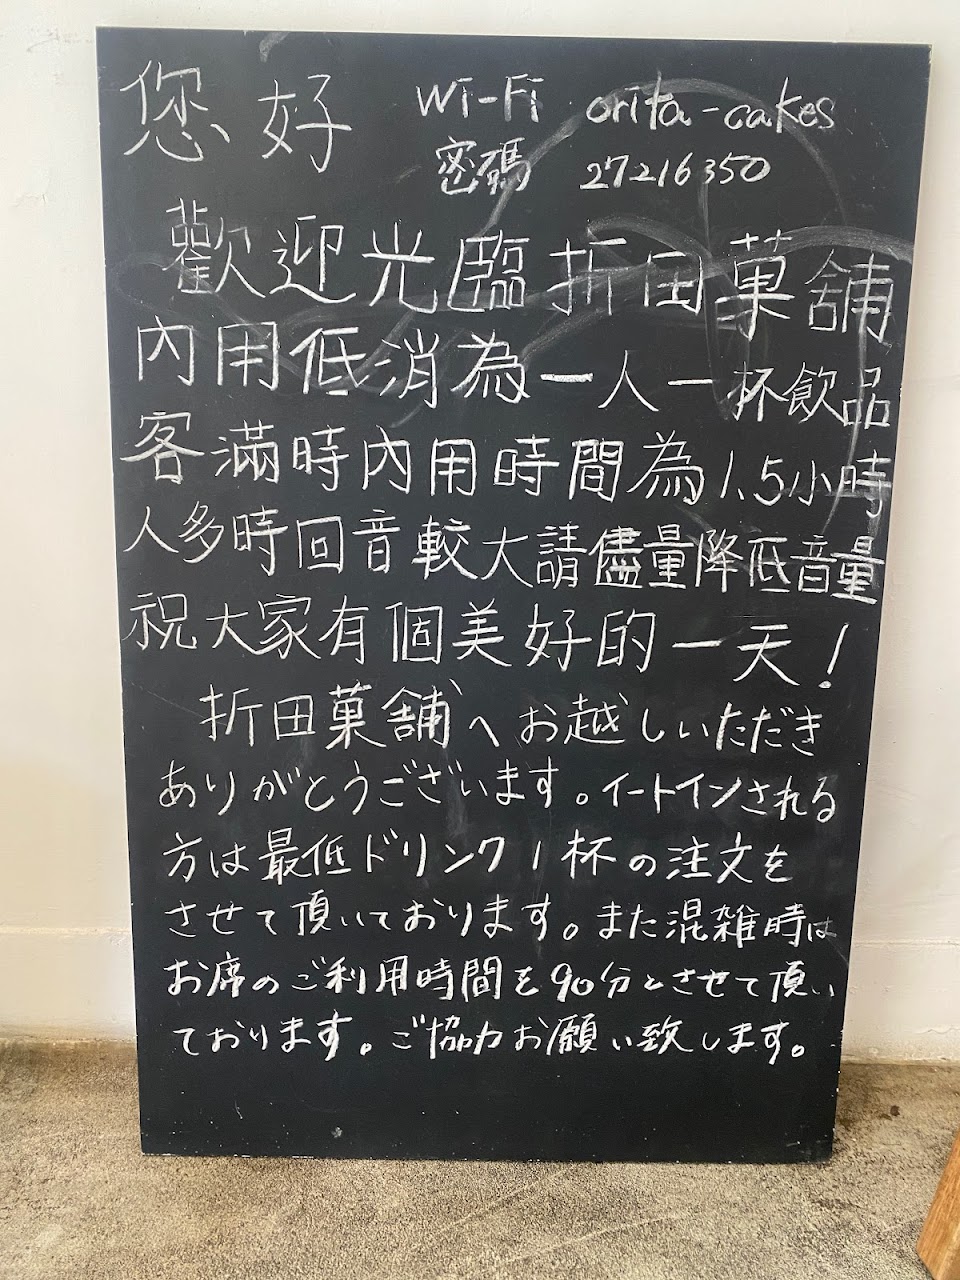 您好 Wi-Fi orita-cakes
密碼 27216350
歡迎光臨折田菓舖
內用低消為一人一杯飲品
客滿時內用時間為1.5小時
人多時回音較大請儘量降低音量
祝大家有個美好的一天!
折田菓舖へお越しいただき
ありがとうございます。イートインされる
方は最低ドリンク1杯の注文を
させて頂いております。また混雑時は
お席のご利用時間を90分とさせて頂い
ております。ご協力お願い致します。